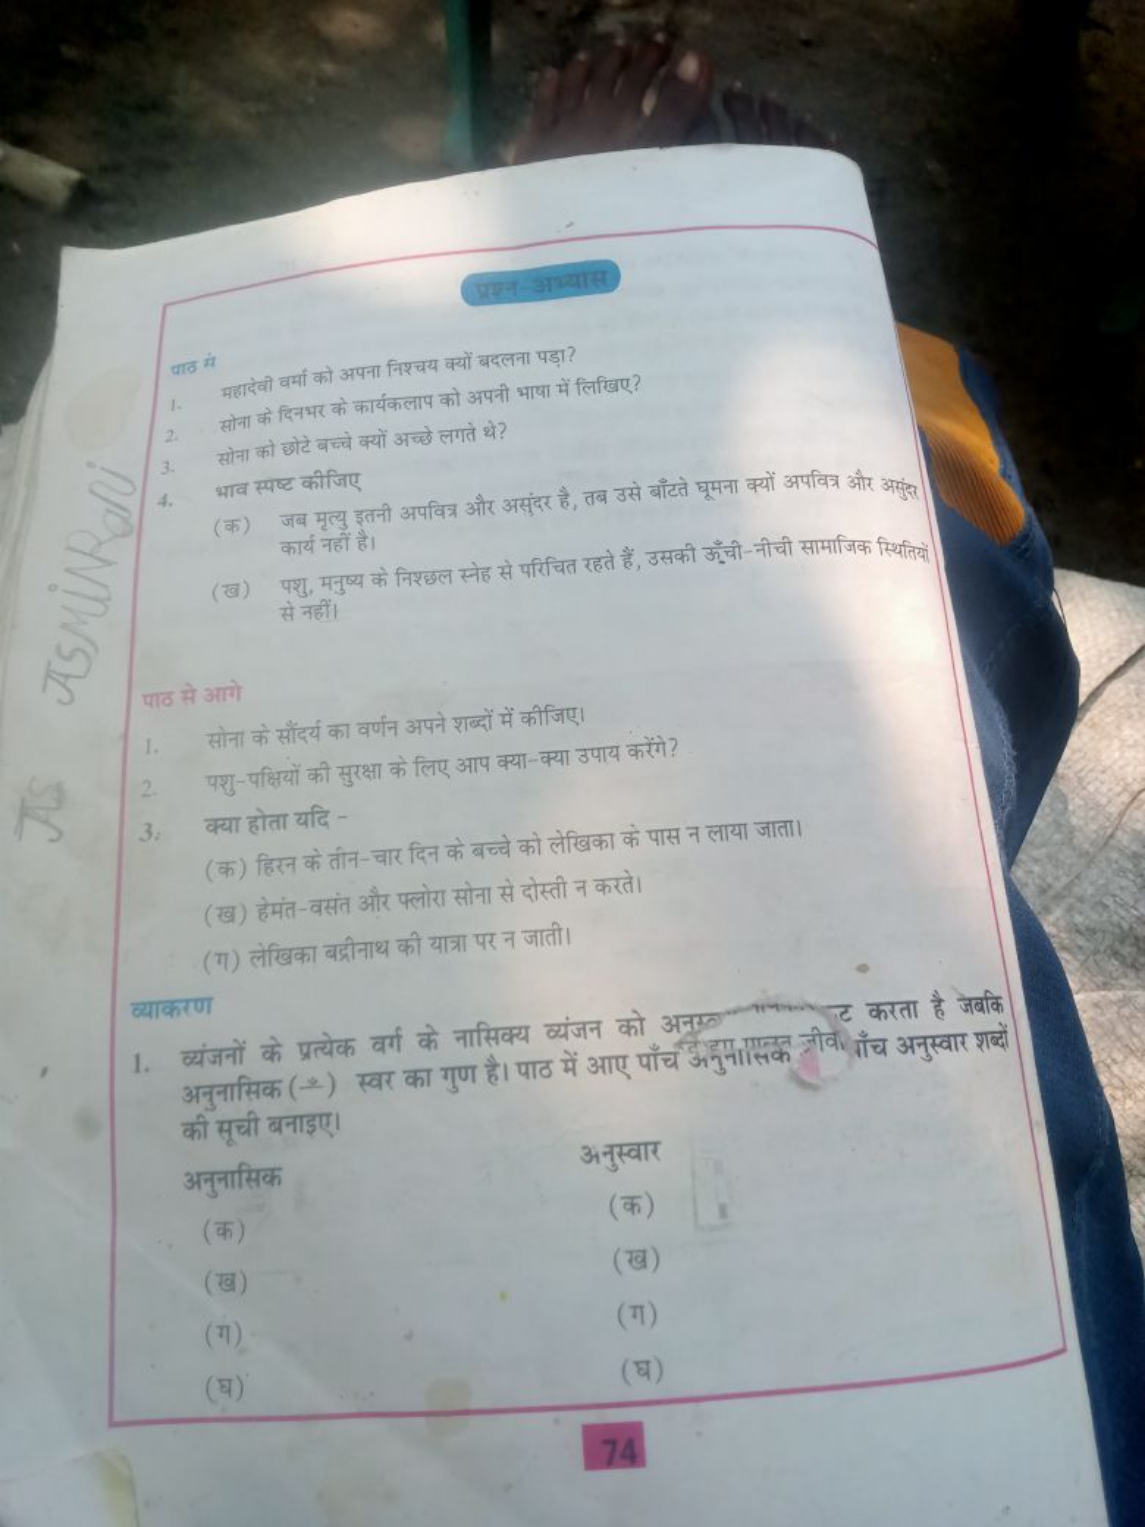 प्रश्न-अभ्यास
पाठ से
1. महादेवी वर्मा को अपना निश्चय क्यों बदलना पड़ा?
2. सोना के दिनभर के कार्यकलाप को अपनी भाषा में लिखिए?
3. सोना को छोटे बच्चे क्यों अच्छे लगते थे?
4. भाव स्पष्ट कीजिए
(क) जब मृत्यु इतनी अपवित्र और असुंदर है, तब उसे बाँटते घूमना क्यों अपवित्र और असुंदर
कार्य नहीं है।
(ख) पशु, मनुष्य के निश्छल स्नेह से परिचित रहते हैं, उसकी ऊँची-नीची सामाजिक स्थितियों
से नहीं।
पाठ से आगे
1. सोना के सौंदर्य का वर्णन अपने शब्दों में कीजिए।
2. पशु-पक्षियों की सुरक्षा के लिए आप क्या-क्या उपाय करेंगे?
3. क्या होता यदि -
(क) हिरन के तीन-चार दिन के बच्चे को लेखिका के पास न लाया जाता।
(ख) हेमंत-वसंत और फ्लोरा सोना से दोस्ती न करते।
(ग) लेखिका बद्रीनाथ की यात्रा पर न जाती।
व्याकरण
1. व्यंजनों के प्रत्येक वर्ग के नासिक्य व्यंजन को करता है जबकि
अनुनासिक (ँ) स्वर का गुण है। पाठ में आए पाँच अनुनासिक पाँच अनुस्वार शब्दों
की सूची बनाइए।
अनुनासिक अनुस्वार
(क) (क)
(ख) (ख)
(ग) (ग)
(घ) (घ)
74
ASMINRani
AS